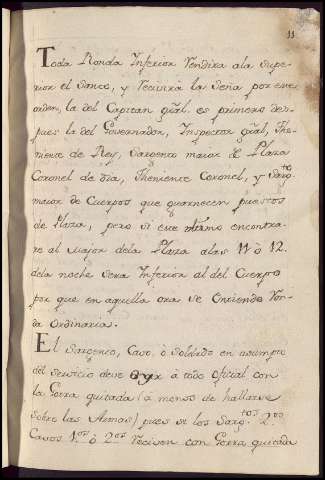 11
Toda Ronda Inferior Rendira ala Supe-
rior el Santo, y recivirá la Seña por este
orden, la del Capitan gral. es primero des-
pues la del Governador, Inspector gral, The-
niente de Rey, Sargento maior de Plaza
Coronel de dia, Theniente Coronel, y Sargto
maior de Cuerpos que guarnecen puestos
de Plaza, pero si este ultimo encontra-
re al maior dela Plaza alas 11 ò 12.
dela noche sera Inferior al del Cuerpo
por que en aquella ora se entiende Ron-
da Ordinaria.
El Sargento, Cavo, ò Soldado en asumpto
del servicio deve oyr à todo oficial con
la Gorra quitada (a menos de hallarse
sobre las Armas) pues si los Sargtos 2.os
Cavos 1.os ò 2.os reciven con Gorra quitada